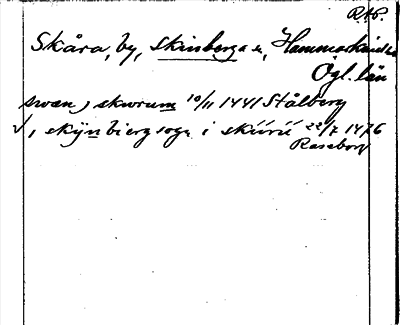 RAP.
Skåra, by, Skinberga sn, Hammarkinds
Ögl. län
swen j skwrum 10/11 1441 Stålberg
√, skÿnbierg sogn i skúrú 22/7 1476
Raseborg